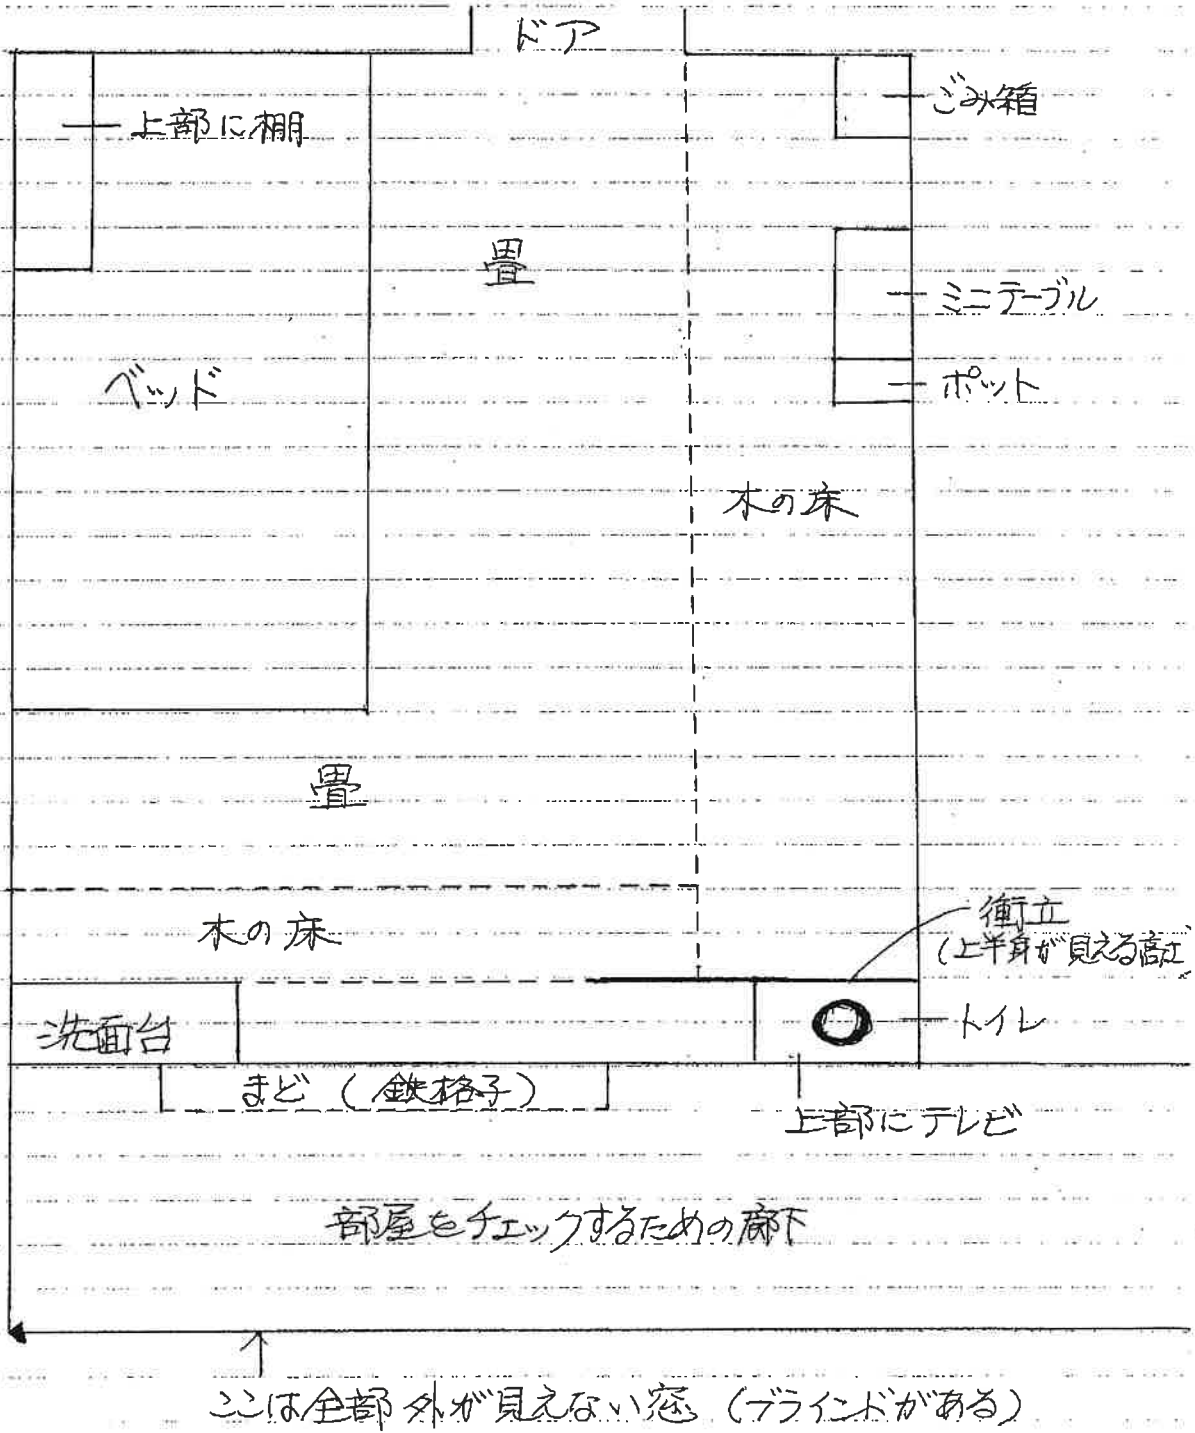 ドア
ごみ箱
上部に棚
畳
ミニテーブル
ベッド
ポット
木の床
畳
木の床
衝立
(上半身が見える高さ
洗面台
トイレ
まど (鉄格子)
上部にテレビ
部屋をチェックするための廊下
ここは全部外が見えない窓 (ブラインドがある)